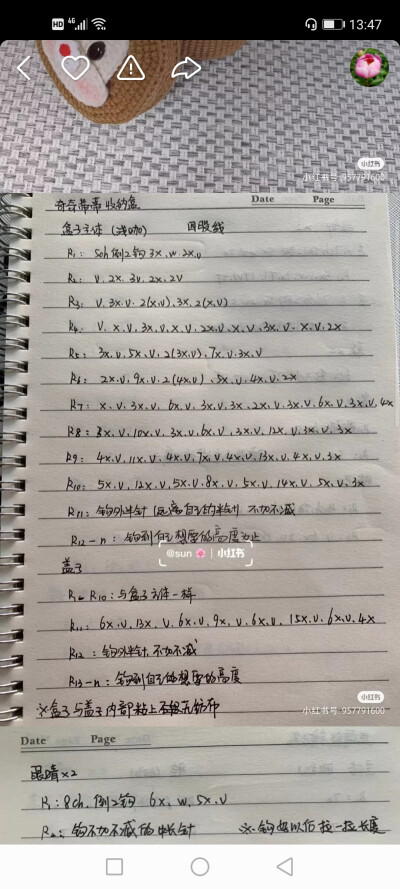 HD 4G 13:47
小红书
小红书号: 957791600
Date Page
奇奇蒂蒂收纳盒
盒子主体 (浅咖) 四股线
R1: 5ch 倒2钩 3x, w, 2x, v
R2: v, 2x, 3v, 2x, 2v
R3: v, 3x, v, 2(x,v), 3x, 2(x,v)
R4: v, x, v, 3x, v, x, v, 2x, v, x, v, 3x, v, x, v, 2x
R5: 3x, v, 5x, v, 2(3x,v), 7x, v, 3x, v
R6: 2x, v, 9x, v, 2(4x,v), 5x, v, 4x, v, 2x
R7: x, v, 3x, v, 6x, v, 3x, v, 3x, 2x, v, 3x, v, 6x, v, 3x, v, 4x
R8: 3x, v, 10x, v, 3x, v, 6x, v, 3x, v, 12x, v, 3x, v, 3x
R9: 4x, v, 11x, v, 4x, v, 7x, v, 4x, v, 13x, v, 4x, v, 3x
R10: 5x, v, 12x, v, 5x, v, 8x, v, 5x, v, 14x, v, 5x, v, 3x
R11: 钩外半针 (远离自己的半针) 不加不减
R12-n: 钩到自己想要的高度为止
@sun 🌸 | 小红书
盖子
R1~R10: 与盒子主体一样
R11: 6x, v, 13x, v, 6x, v, 9x, v, 6x, v, 15x, v, 6x, v, 4x
R12: 钩外半针, 不加不减
R13-n: 钩到自己想要的高度
※盒子与盖子内部粘上不织无纺布
小红书
小红书号: 957791600
Date Page
眼睛×2
R1: 8ch, 倒2钩 6x, w, 5x, v
R2: 钩不加不减的中长针 ※钩好以后拉一拉长度